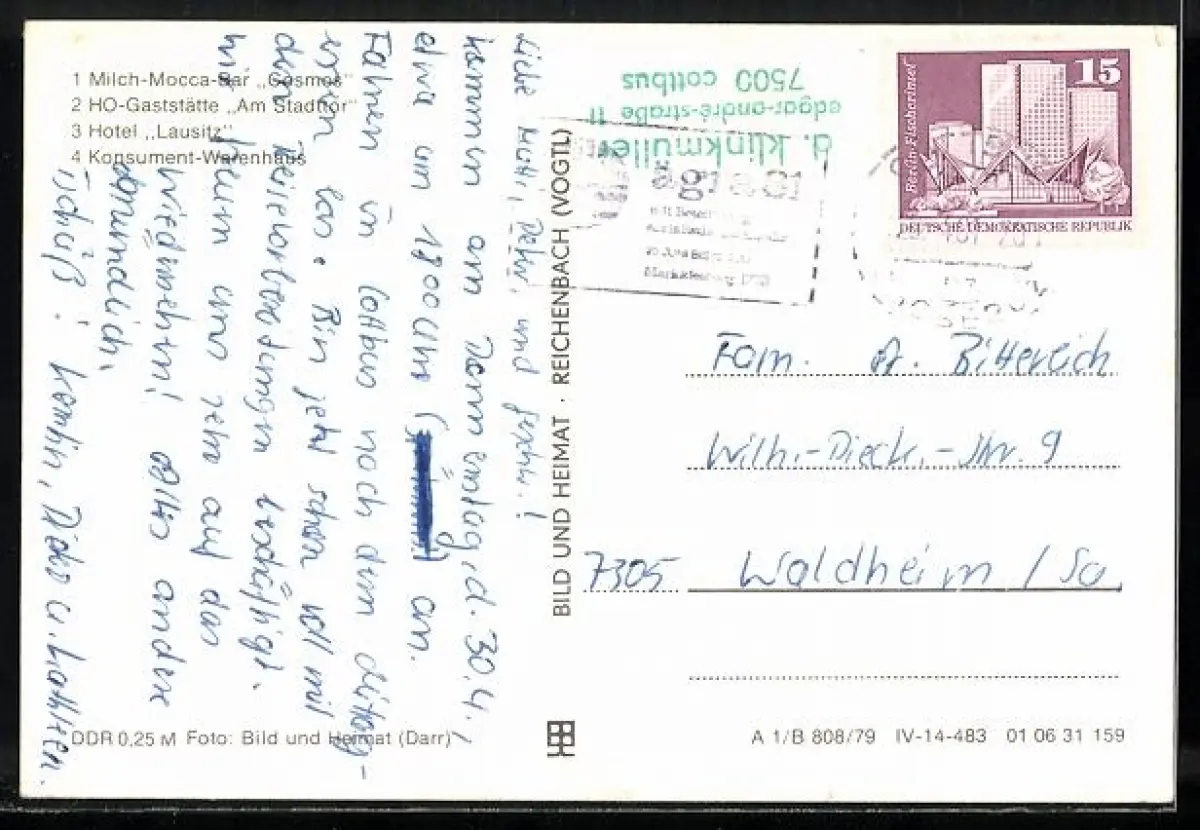 1 Milch-Mocca-Bar „Cosmos"
2 HO-Gaststätte „Am Stadttor"
3 Hotel „Lausitz"
4 Konsument-Warenhaus
Liebe Mutti, Peter, und Geschw.!
kommen am Donnerstag, d. 30.4.,
etwa um 1800 Uhr ( ) an.
Fahren in Cottbus noch dem
essen los. Bin jetzt schon voll mit
den Reisevorbereitungen beschäftigt.
wir freuen uns sehr auf das
Wiedersehen! alles andere
dann mündlich.
Tschüß!
DDR 0,25 M Foto: Bild und Heimat (Darr)
BILD UND HEIMAT · REICHENBACH (VOGTL)
d. klinkmüller
edgar-andré-straße 11
7500 cottbus
agra 81
Markkleeberg
15
Berlin-Fischerinsel
DEUTSCHE DEMOKRATISCHE REPUBLIK
Fam. A. Bittereich
Wilh.-Pieck.-Str. 9
7305 Waldheim / Sa.
A 1/B 808/79 IV-14-483 01 06 31 159